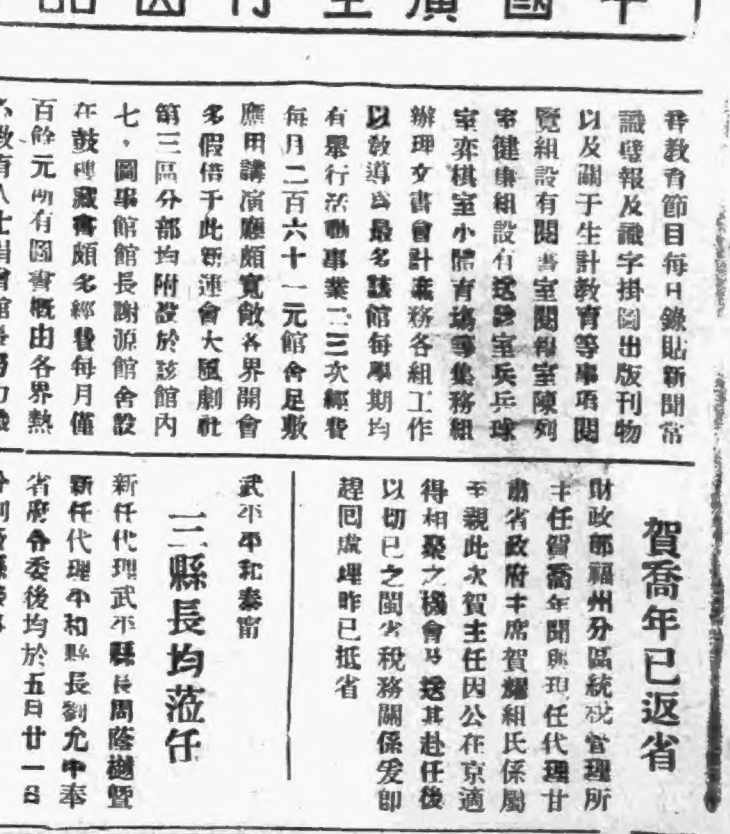 中國廣
育教育節目每日錄貼新聞常
識壁報及識字掛圖出版刊物
以及關于生計教育等事項閱
覽組設有閱書室閱報室陳列
室健康組設有送診室兵乒球
室弈棋室小體育塲等集務組
辦理文書會計庶務各組工作
以敎導爲最多該館每學期均
有舉行活動事業二三次經費
每月二百六十一元館舍足敷
應用講演廳頗寬敞各界開會
多假借于此新運會大風劇社
第三區分部均附設於該館內
七、圖書館館長謝源館舍設
在鼓樓藏書頗多經費每月僅
百餘元所有圖書概由各界熱
賀喬年已返省
財政部福州分區統稅管理所
主任賀喬年聞與現任代理甘
肅省政府主席賀耀組氏係屬
至親此次賀主任因公在京適
得相聚之機會歡送其赴任後
以切已之閩省稅務關係爰即
趕回處理昨已抵省
武平平和泰甯
三縣長均蒞任
新任代理武平縣長周蔭樾暨
新任代理平和縣長劉允中奉
省府各委後均於五月廿一日